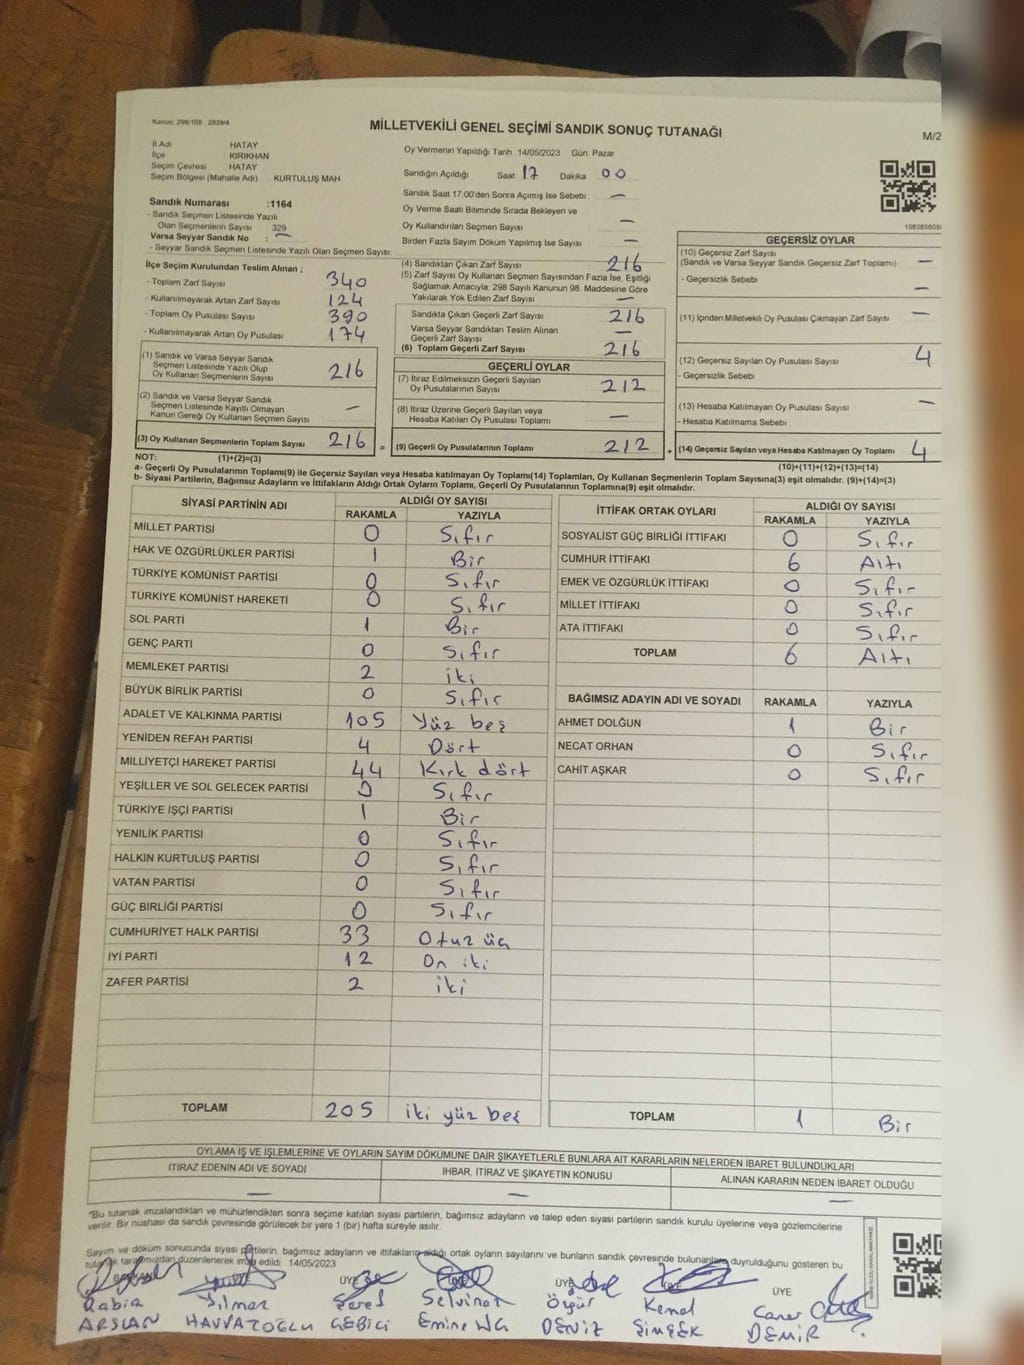 Kanun: 298/105 , 2839/4
MİLLETVEKİLİ GENEL SEÇİMİ SANDIK SONUÇ TUTANAĞI
M/2
İl Adı HATAY
İlçe KIRIKHAN
Seçim Çevresi HATAY
Seçim Bölgesi (Mahalle Adı) KURTULUŞ MAH.
Sandık Numarası :1164
- Sandık Seçmen Listesinde Yazılı
Olan Seçmenlerin Sayısı 329
Varsa Seyyar Sandık No : —
- Seyyar Sandık Seçmen Listesinde Yazılı Olan Seçmen Sayısı:
Oy Vermenin Yapıldığı Tarih 14/05/2023 Gün Pazar
Sandığın Açıldığı Saat 17 Dakika 00
Sandık Saat 17:00'den Sonra Açımış İse Sebebi —
Oy Verme Saati Bitiminde Sırada Bekleyen ve
Oy Kullandırılan Seçmen Sayısı —
Birden Fazla Sayım Döküm Yapılmış İse Sayısı —
İlçe Seçim Kurulundan Teslim Alınan ;
- Toplam Zarf Sayısı 340
- Kullanılmayarak Artan Zarf Sayısı 124
- Toplam Oy Pusulası Sayısı 390
- Kullanılmayarak Artan Oy Pusulası 174
(1) Sandık ve Varsa Seyyar Sandık
Seçmen Listesinde Yazılı Olup
Oy Kullanan Seçmenlerin Sayısı 216
(2) Sandık ve Varsa Seyyar Sandık
Seçmen Listesinde Kayıtlı Olmayan
Kanun Gereği Oy Kullanan Seçmen Sayısı —
(3) Oy Kullanan Seçmenlerin Toplam Sayısı 216 =
(4) Sandıktan Çıkan Zarf Sayısı 216
(5) Zarf Sayısı Oy Kullanan Seçmen Sayısından Fazla İse, Eşitliği
Sağlamak Amacıyla, 298 Sayılı Kanunun 98. Maddesine Göre
Yakılarak Yok Edilen Zarf Sayısı —
Sandıkta Çıkan Geçerli Zarf Sayısı 216
Varsa Seyyar Sandıktan Teslim Alınan
Geçerli Zarf Sayısı —
(6) Toplam Geçerli Zarf Sayısı 216
GEÇERLİ OYLAR
(7) İtiraz Edilmeksizin Geçerli Sayılan
Oy Pusulalarının Sayısı 212
(8) İtiraz Üzerine Geçerli Sayılan veya
Hesaba Katılan Oy Pusulası Toplamı —
(9) Geçerli Oy Pusulalarının Toplamı 212 +
GEÇERSİZ OYLAR
(10) Geçersiz Zarf Sayısı
(Sandık ve Varsa Seyyar Sandık Geçersiz Zarf Toplamı) —
- Geçersizlik Sebebi —
(11) İçinden Milletvekili Oy Pusulası Çıkmayan Zarf Sayısı —
(12) Geçersiz Sayılan Oy Pusulası Sayısı 4
- Geçersizlik Sebebi
(13) Hesaba Katılmayan Oy Pusulası Sayısı —
- Hesaba Katılmama Sebebi
(14) Geçersiz Sayılan veya Hesaba Katılmayan Oy Toplamı 4
NOT: (1)+(2)=(3) (10)+(11)+(12)+(13)=(14)
a- Geçerli Oy Pusulalarının Toplamı(9) ile Geçersiz Sayılan veya Hesaba katılmayan Oy Toplamı(14) Toplamları, Oy Kullanan Seçmenlerin Toplam Sayısına(3) eşit olmalıdır. (9)+(14)=(3)
b- Siyasi Partilerin, Bağımsız Adayların ve İttifakların Aldığı Ortak Oyların Toplamı, Geçerli Oy Pusulalarının Toplamına(9) eşit olmalıdır.
SİYASİ PARTİNİN ADI ALDIĞI OY SAYISI
RAKAMLA YAZIYLA
MİLLET PARTİSİ 0 Sıfır
HAK VE ÖZGÜRLÜKLER PARTİSİ 1 Bir
TÜRKİYE KOMÜNİST PARTİSİ 0 Sıfır
TÜRKİYE KOMÜNİST HAREKETİ 0 Sıfır
SOL PARTİ 1 Bir
GENÇ PARTİ 0 Sıfır
MEMLEKET PARTİSİ 2 iki
BÜYÜK BİRLİK PARTİSİ 0 Sıfır
ADALET VE KALKINMA PARTİSİ 105 Yüz beş
YENİDEN REFAH PARTİSİ 4 Dört
MİLLİYETÇİ HAREKET PARTİSİ 44 Kırk dört
YEŞİLLER VE SOL GELECEK PARTİSİ 0 Sıfır
TÜRKİYE İŞÇİ PARTİSİ 1 Bir
YENİLİK PARTİSİ 0 Sıfır
HALKIN KURTULUŞ PARTİSİ 0 Sıfır
VATAN PARTİSİ 0 Sıfır
GÜÇ BİRLİĞİ PARTİSİ 0 Sıfır
CUMHURİYET HALK PARTİSİ 33 Otuz üç
İYİ PARTİ 12 On iki
ZAFER PARTİSİ 2 iki
TOPLAM 205 iki yüz beş
İTTİFAK ORTAK OYLARI ALDIĞI OY SAYISI
RAKAMLA YAZIYLA
SOSYALİST GÜÇ BİRLİĞİ İTTİFAKI 0 Sıfır
CUMHUR İTTİFAKI 6 Altı
EMEK VE ÖZGÜRLÜK İTTİFAKI 0 Sıfır
MİLLET İTTİFAKI 0 Sıfır
ATA İTTİFAKI 0 Sıfır
TOPLAM 6 Altı
BAĞIMSIZ ADAYIN ADI VE SOYADI RAKAMLA YAZIYLA
AHMET DOLĞUN 1 Bir
NECAT ORHAN 0 Sıfır
CAHİT AŞKAR 0 Sıfır
TOPLAM 1 Bir
OYLAMA İŞ VE İŞLEMLERİNE VE OYLARIN SAYIM DÖKÜMÜNE DAİR ŞİKAYETLERLE BUNLARA AİT KARARLARIN NELERDEN İBARET BULUNDUKLARI
İTİRAZ EDENİN ADI VE SOYADI İHBAR, İTİRAZ VE ŞİKAYETİN KONUSU ALINAN KARARIN NEDEN İBARET OLDUĞU
— — —
*Bu tutanak imzalandıktan ve mühürlendikten sonra seçime katılan siyasi partilerin, bağımsız adayların ve talep eden siyasi partilerin sandık kurulu üyelerine veya gözlemcilerine
verilir. Bir nüshası da sandık çevresinde görülecek bir yere 1 (bir) hafta süreyle asılır.
Sayım ve döküm sonucunda siyasi partilerin, bağımsız adayların ve ittifakların aldığı ortak oyların sayılarını ve bunların sandık çevresinde bulunanlara duyrulduğunu gösteren bu
tutanak tarafımızdan düzenlenerek imza edildi 14/05/2023
BAŞKAN ÜYE ÜYE ÜYE ÜYE
Rabia Yılmaz Şeref Selvinaz Özgür Kemal Caner
ARSLAN HAVVATOĞLU GEBİCİ Emine DENİZ ŞİMŞEK DEMİR